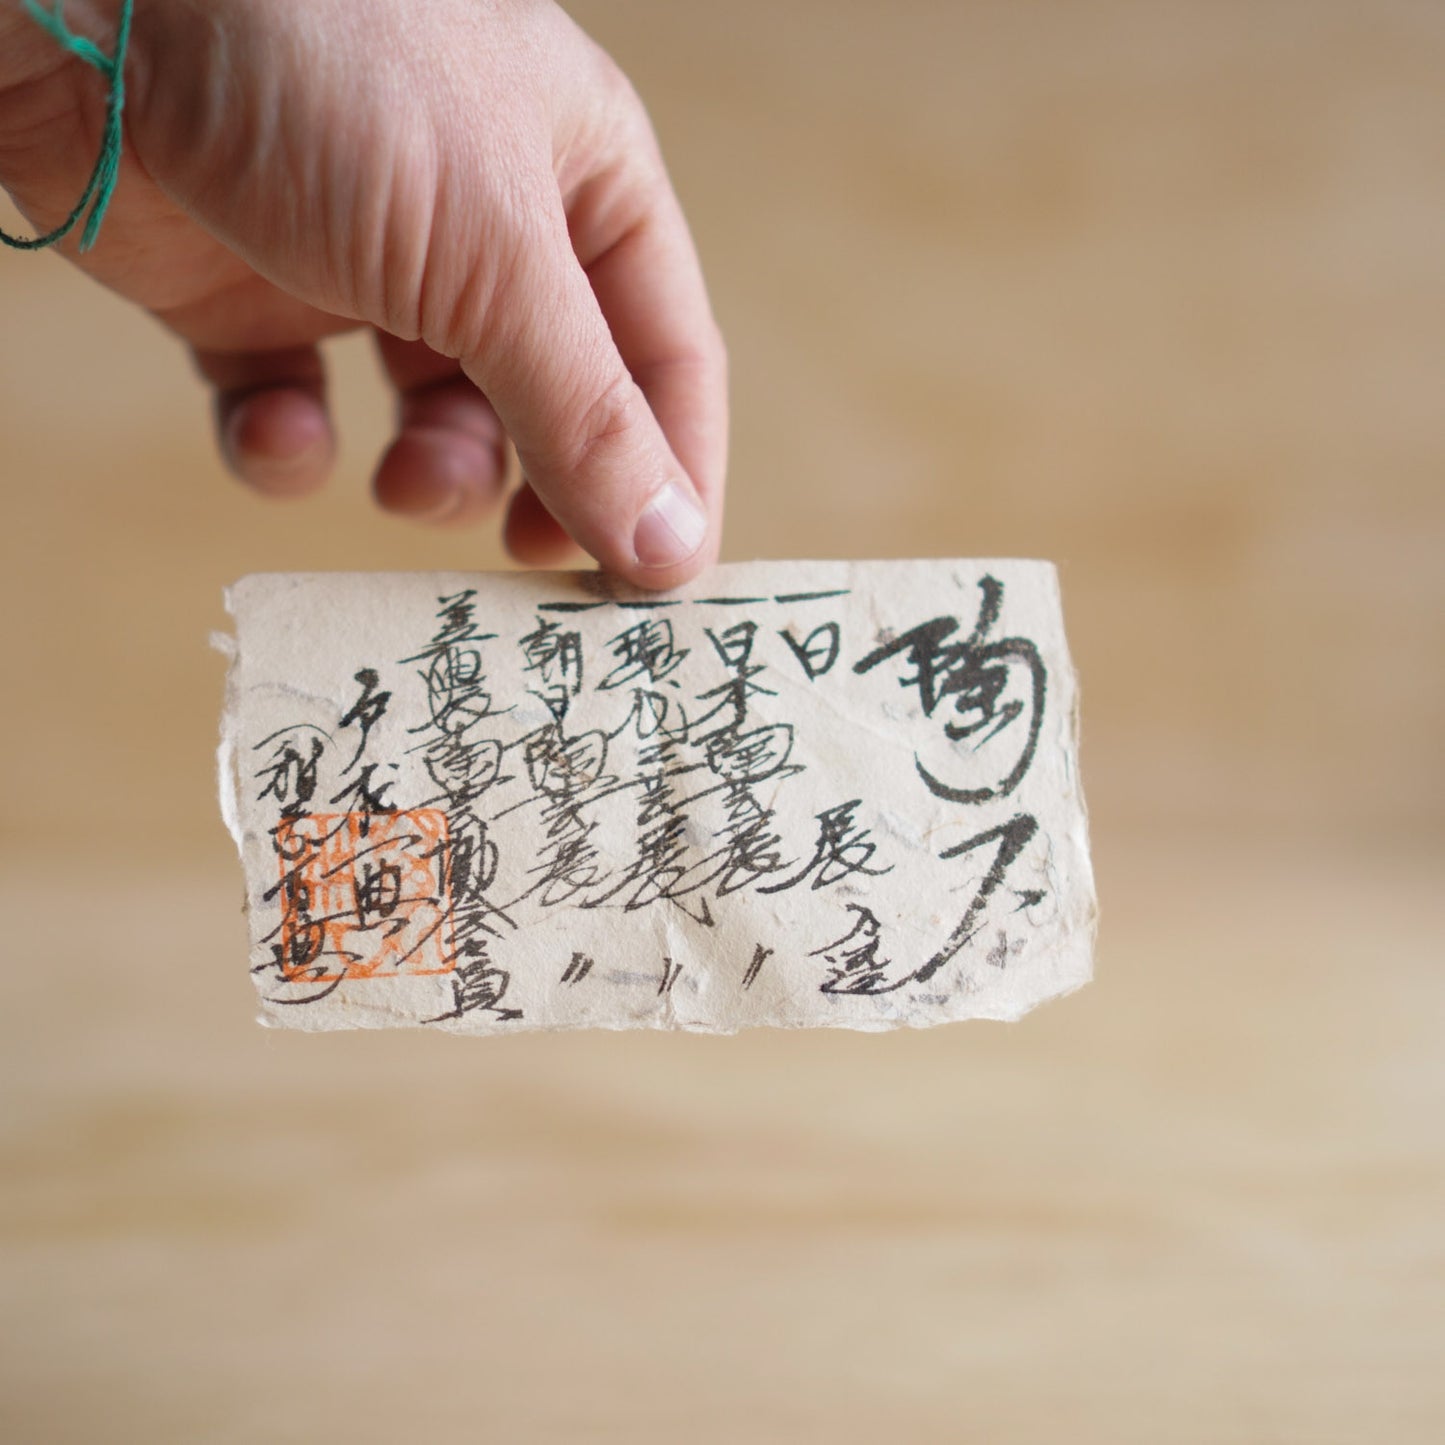 陶歴
一日展入選
一日本陶芸展〃
一現代工芸展〃
一朝日陶芸展〃
美濃陶芸協会会員
戸木一典